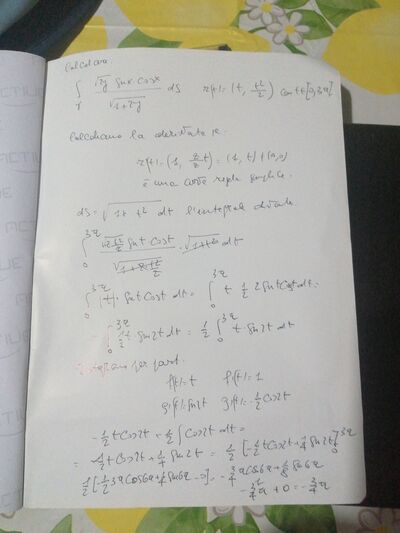 Calcolare
∫γ √2y senx·cosx / √1+2y ds r(t) = (t, t²/2) con t∈[0,3π]
Calcoliamo la derivata
r'(t) = (1, 2/2 t) = (1, t) ≠ (0,0)
è una curva semplice.
ds = √1+t² dt l'integrale diventa
∫₀^3π √2·t²/2 sent·cost / √1+2·t²/2 · √1+t² dt
∫₀^3π |t|· sent cost dt = ∫₀^3π t 1/2 2 sent cost dt =
∫₀^3π 1/2 t· sen2t dt = 1/2 ∫₀^3π t· sen2t dt
Integriamo per parti
f(t) = t f'(t) = 1
g'(t) = sen2t g(t) = -1/2 cos2t
-1/2 t cos2t + 1/2 ∫ cos2t dt =
= -1/2 t cos2t + 1/4 sen2t = 1/2 [-1/2 t cos2t + 1/4 sen2t]₀^3π
1/2 [-1/2 3π cos6π + 1/4 sen6π - 0] = -3/4 π cos6π + 1/8 sen6π
-3/4 π + 0 = -3/4 π